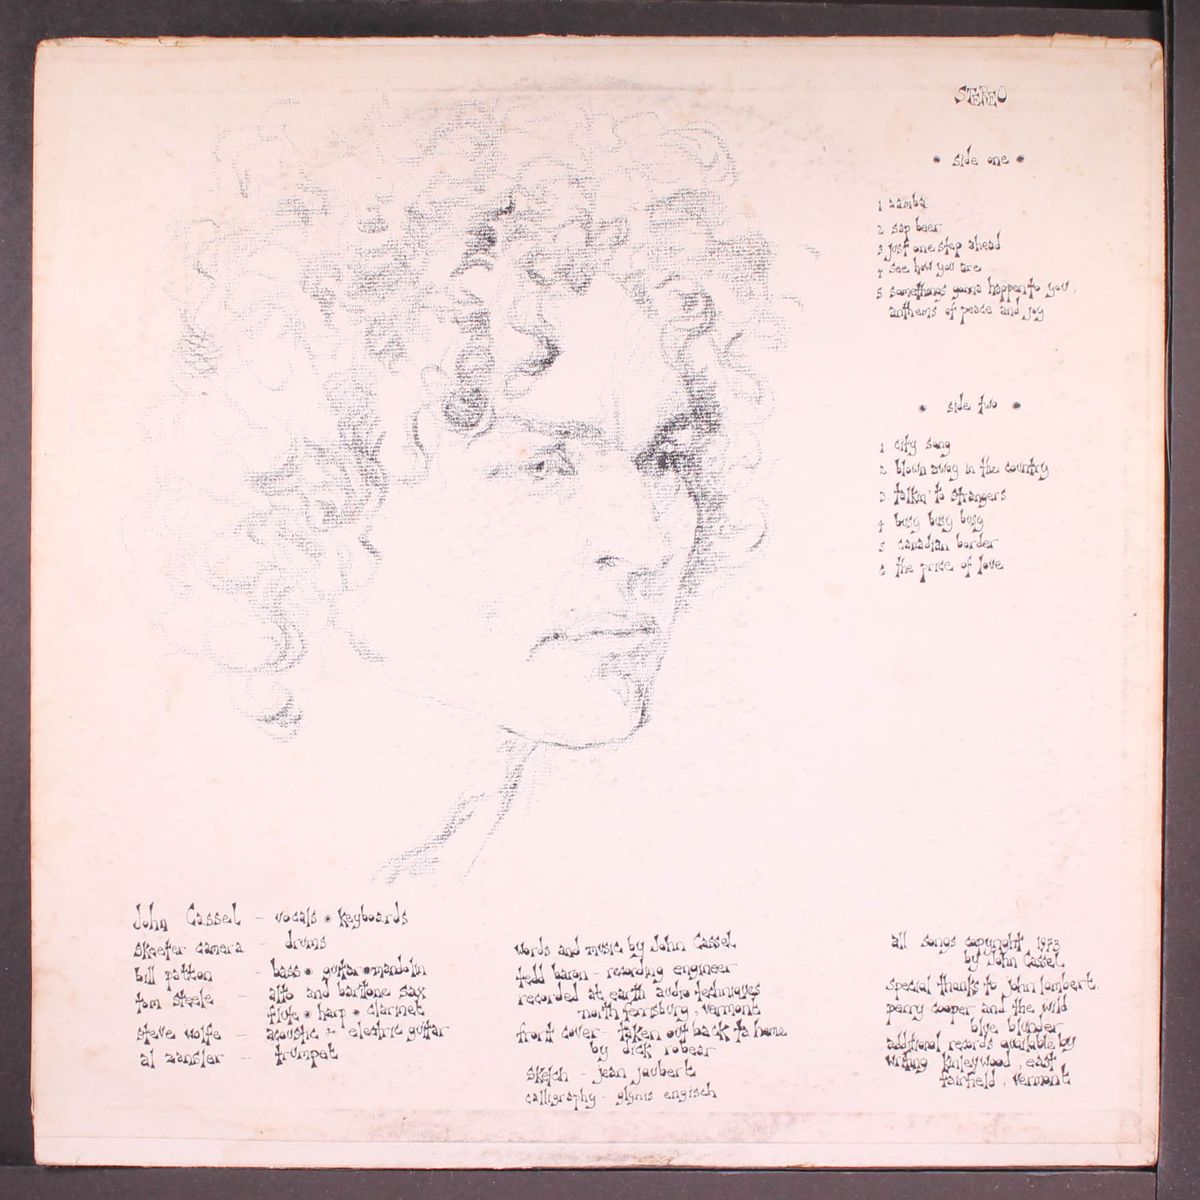 STEREO
• side one •
1 zamba
2 sap beer
3 just one step ahead
4 see how you are
5 somethings gonna happen to you,
anthems of peace and joy
• side two •
1 city song
2 blown away in the country
3 talkin' to strangers
4 busy busy busy
5 canadian border
6 the price of love
John Cassel - vocals • keyboards
skeeter camera - drums
bill patton - bass • guitar • mandolin
tom steele - alto and baritone sax
flute • harp • clarinet
steve wolfe - acoustic + electric guitar
al zansler - trumpet
words and music by John Cassel
tedd baron - recording engineer
recorded at earth audio techniques
north ferrisburg, vermont
front cover - taken out back ta home
by dick robear
sketch - jean joubert
calligraphy - glynis engisch
all songs copyright 1973
by John Cassel
special thanks to john lambert,
perry cooper and the wild
blue blunder
additional records available by
writing kinleywood, east
fairfield, vermont